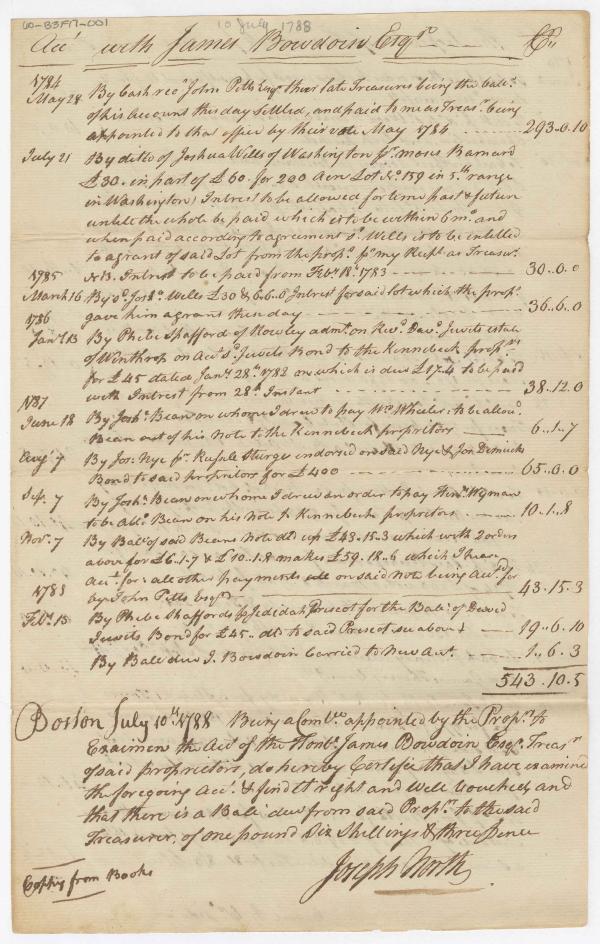 60-B3F17-001
10 July 1788
Acct with James Bowdoin Esqr Cr
1784
May 28 By Cash recd John Pitts Esqr their late Treasurer being the balce
of his Account this day Settled, and paid to me as Treasr being
appointed to that office by their vote May 1784 293..0..10
July 21 By ditto of Joshua Wells of Washington pr Moses Barnard
£30. in part of £60. for 200 Acre Lot No 159 in 5th range
in Washington, Interest to be allowed for time past & future
untill the whole be paid which is to be within 6 mo. and
when paid according to agreement sd Wells is to be intitled
to a grant of said Lot from the propr. pr my Rect as Treasr.
NB. Interest to be paid from Feby 18th 1783 30..0..0
1785
March 16 By sd Josha Wells £30 & 6..6..0 Interest for said lot which the propr
gave him a grant this day 36..6..0
1786
Jany 13 By Phebe Spafford of Rowley admx. on Revd Davd Jewits estate
of Winthrop on Acct sd Jewits Bond to the Kennebeck proprs
for £45 dated Jany 28th 1782 on which is due £17.4 to be paid
with Interest from 28th Instant 38..12..0
1787
June 18 By Josha Bean on whome I drew to pay Wm Wheeler to be allowd
Bean out of his Note to the Kennebeck propritors 6..1..7
Augt 7 By Jos: Nye pr Rufus Sturgis endorsed on said Nye & Jon Dimucks
Bond to said propritors for £400 65..0..0
Sep. 7 By Josha Bean on whome I drew an order to pay Henry Wyman
to be alld Bean on his Note to Kennebeck propritors 10..1..8
Nov. 7 By Balce of said Beans Note dld up £43..15..3 which with 2 orders
above for £6..1..7 & £10..1..8 makes £59..18..6 which I have
Acctd for: all other payments on said Note being Acctd for
by John Pitts Esqr 43..15..3
1788
Feby 15 By Phebe Shaffords pr Jedidah Prescot for the Balce of David
Jewits Bond for £45. dld to said Prescot see above 19..6..10
By Balce due J. Bowdoin Carried to New Acct. 1..6..3
543..10..5
Boston July 10th 1788 Being a Comtee appointed by the Proprs to
Examien the Acct of the Honble James Bowdoin Esqr. Treasr
of said proprietors, do hereby Certifie that I have examined
the foregoing Acct. & find it right and Well Vouched, and
that there is a Balce due from said Proprs to the said
Treasurer, of one pound Six Shillings & three pence
Joseph North
Copy from Books